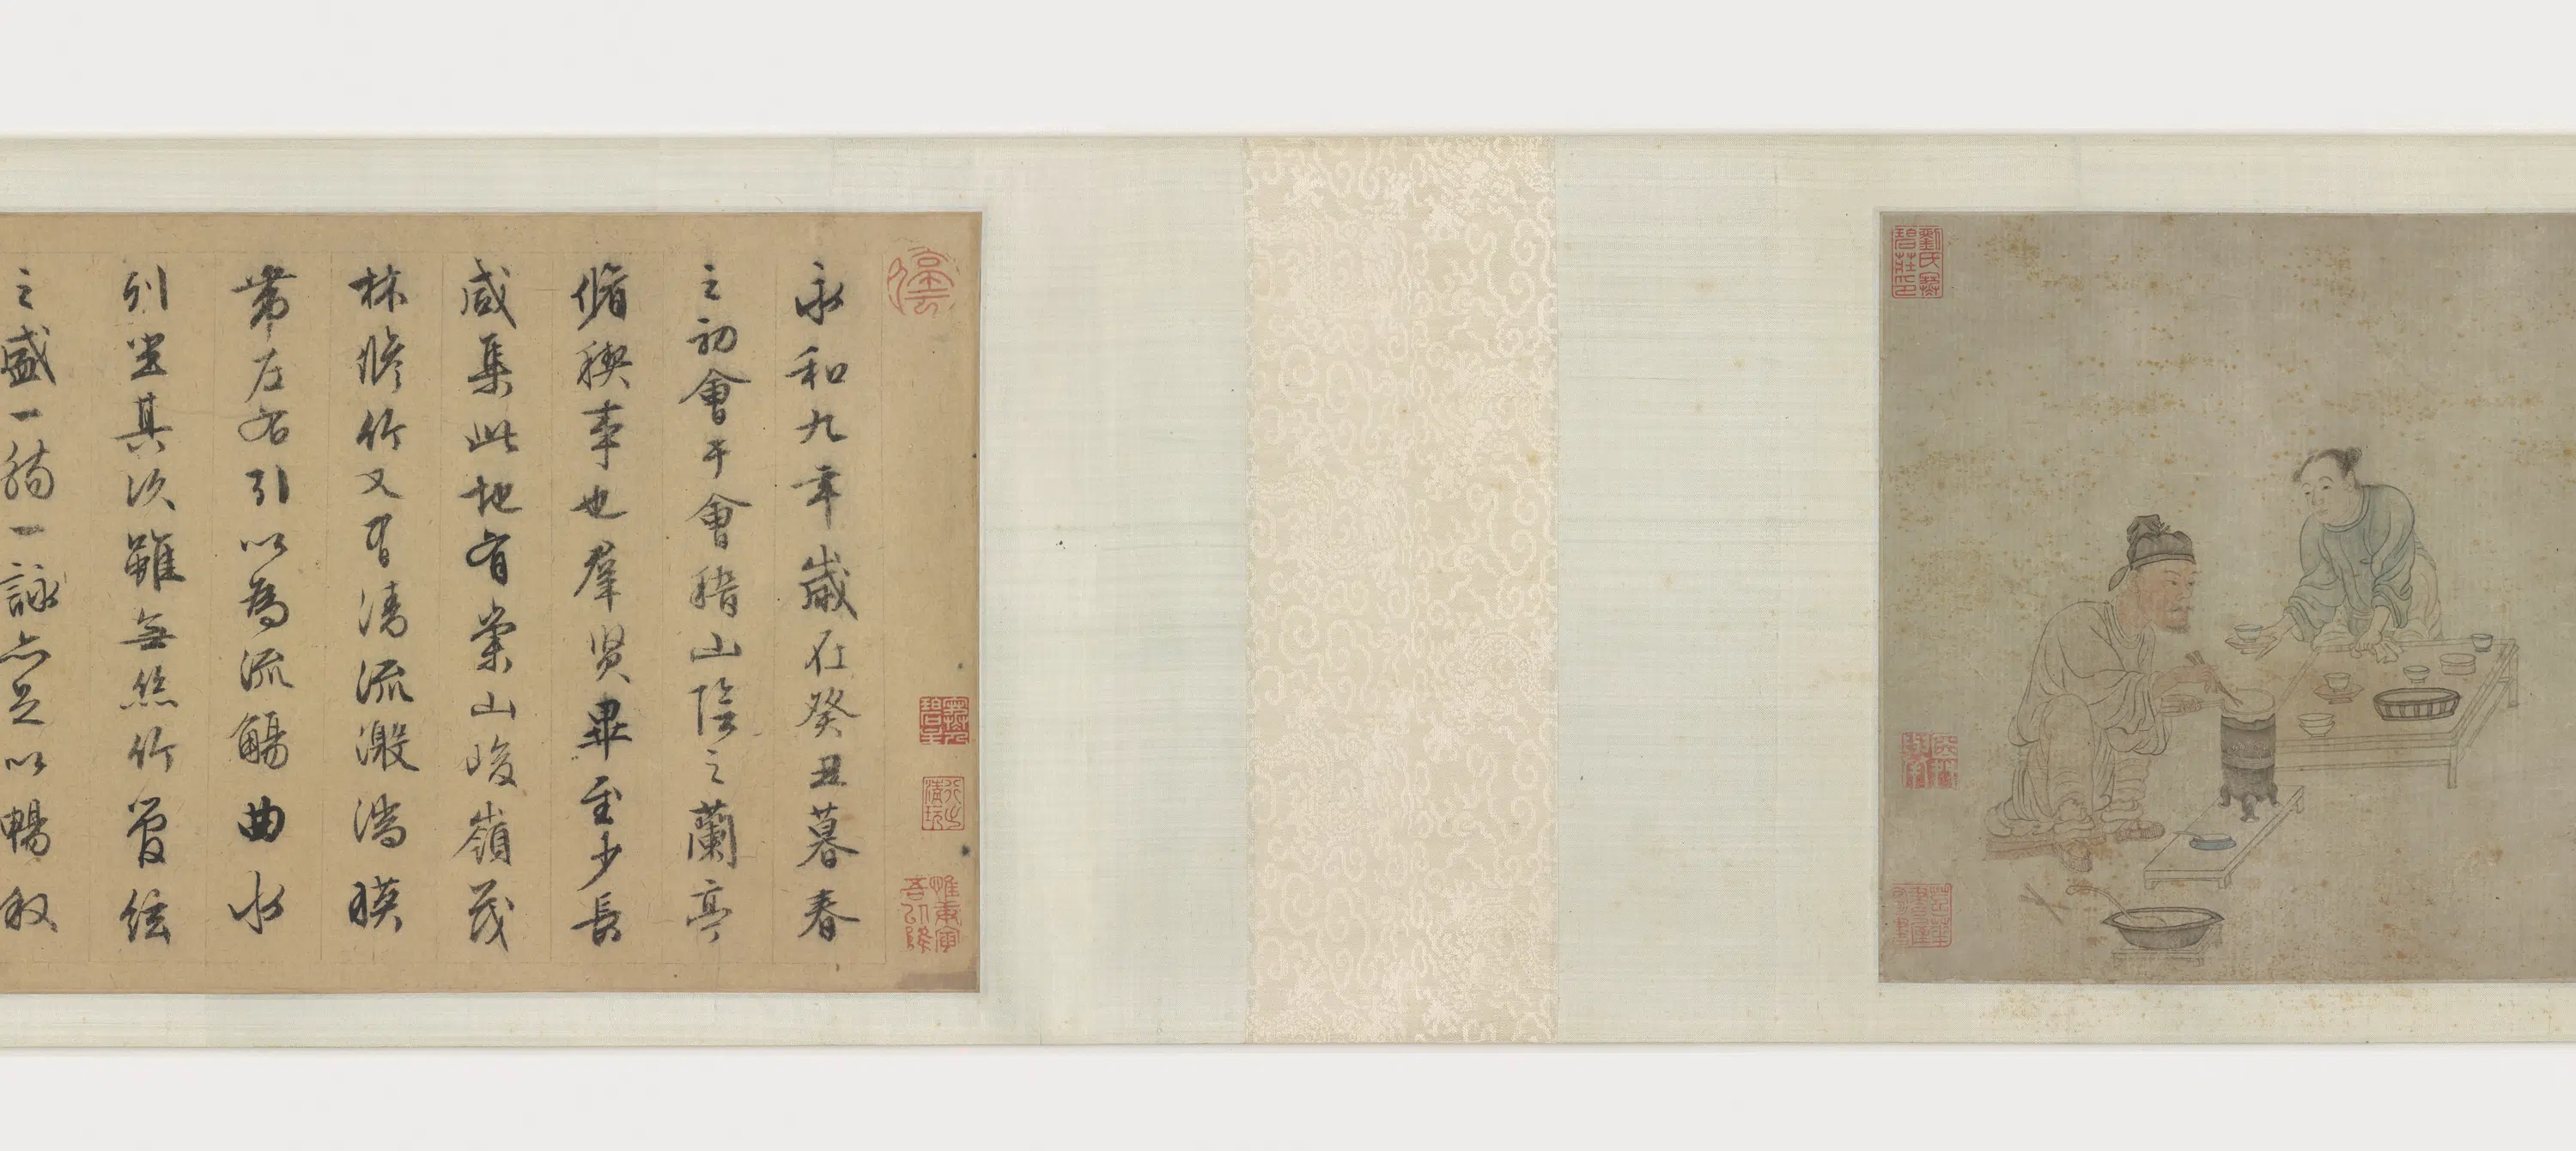 劉氏寒碧莊印
惟庚寅吾以降
永和九年歲在癸丑暮春
之初會于會稽山陰之蘭亭
脩稧事也羣賢畢至少長
咸集此地有崇山峻嶺茂
林脩竹又有清流激湍暎
帶左右引以為流觴曲水
列坐其次雖無絲竹管絃
之盛一觴一詠亦足以暢叙